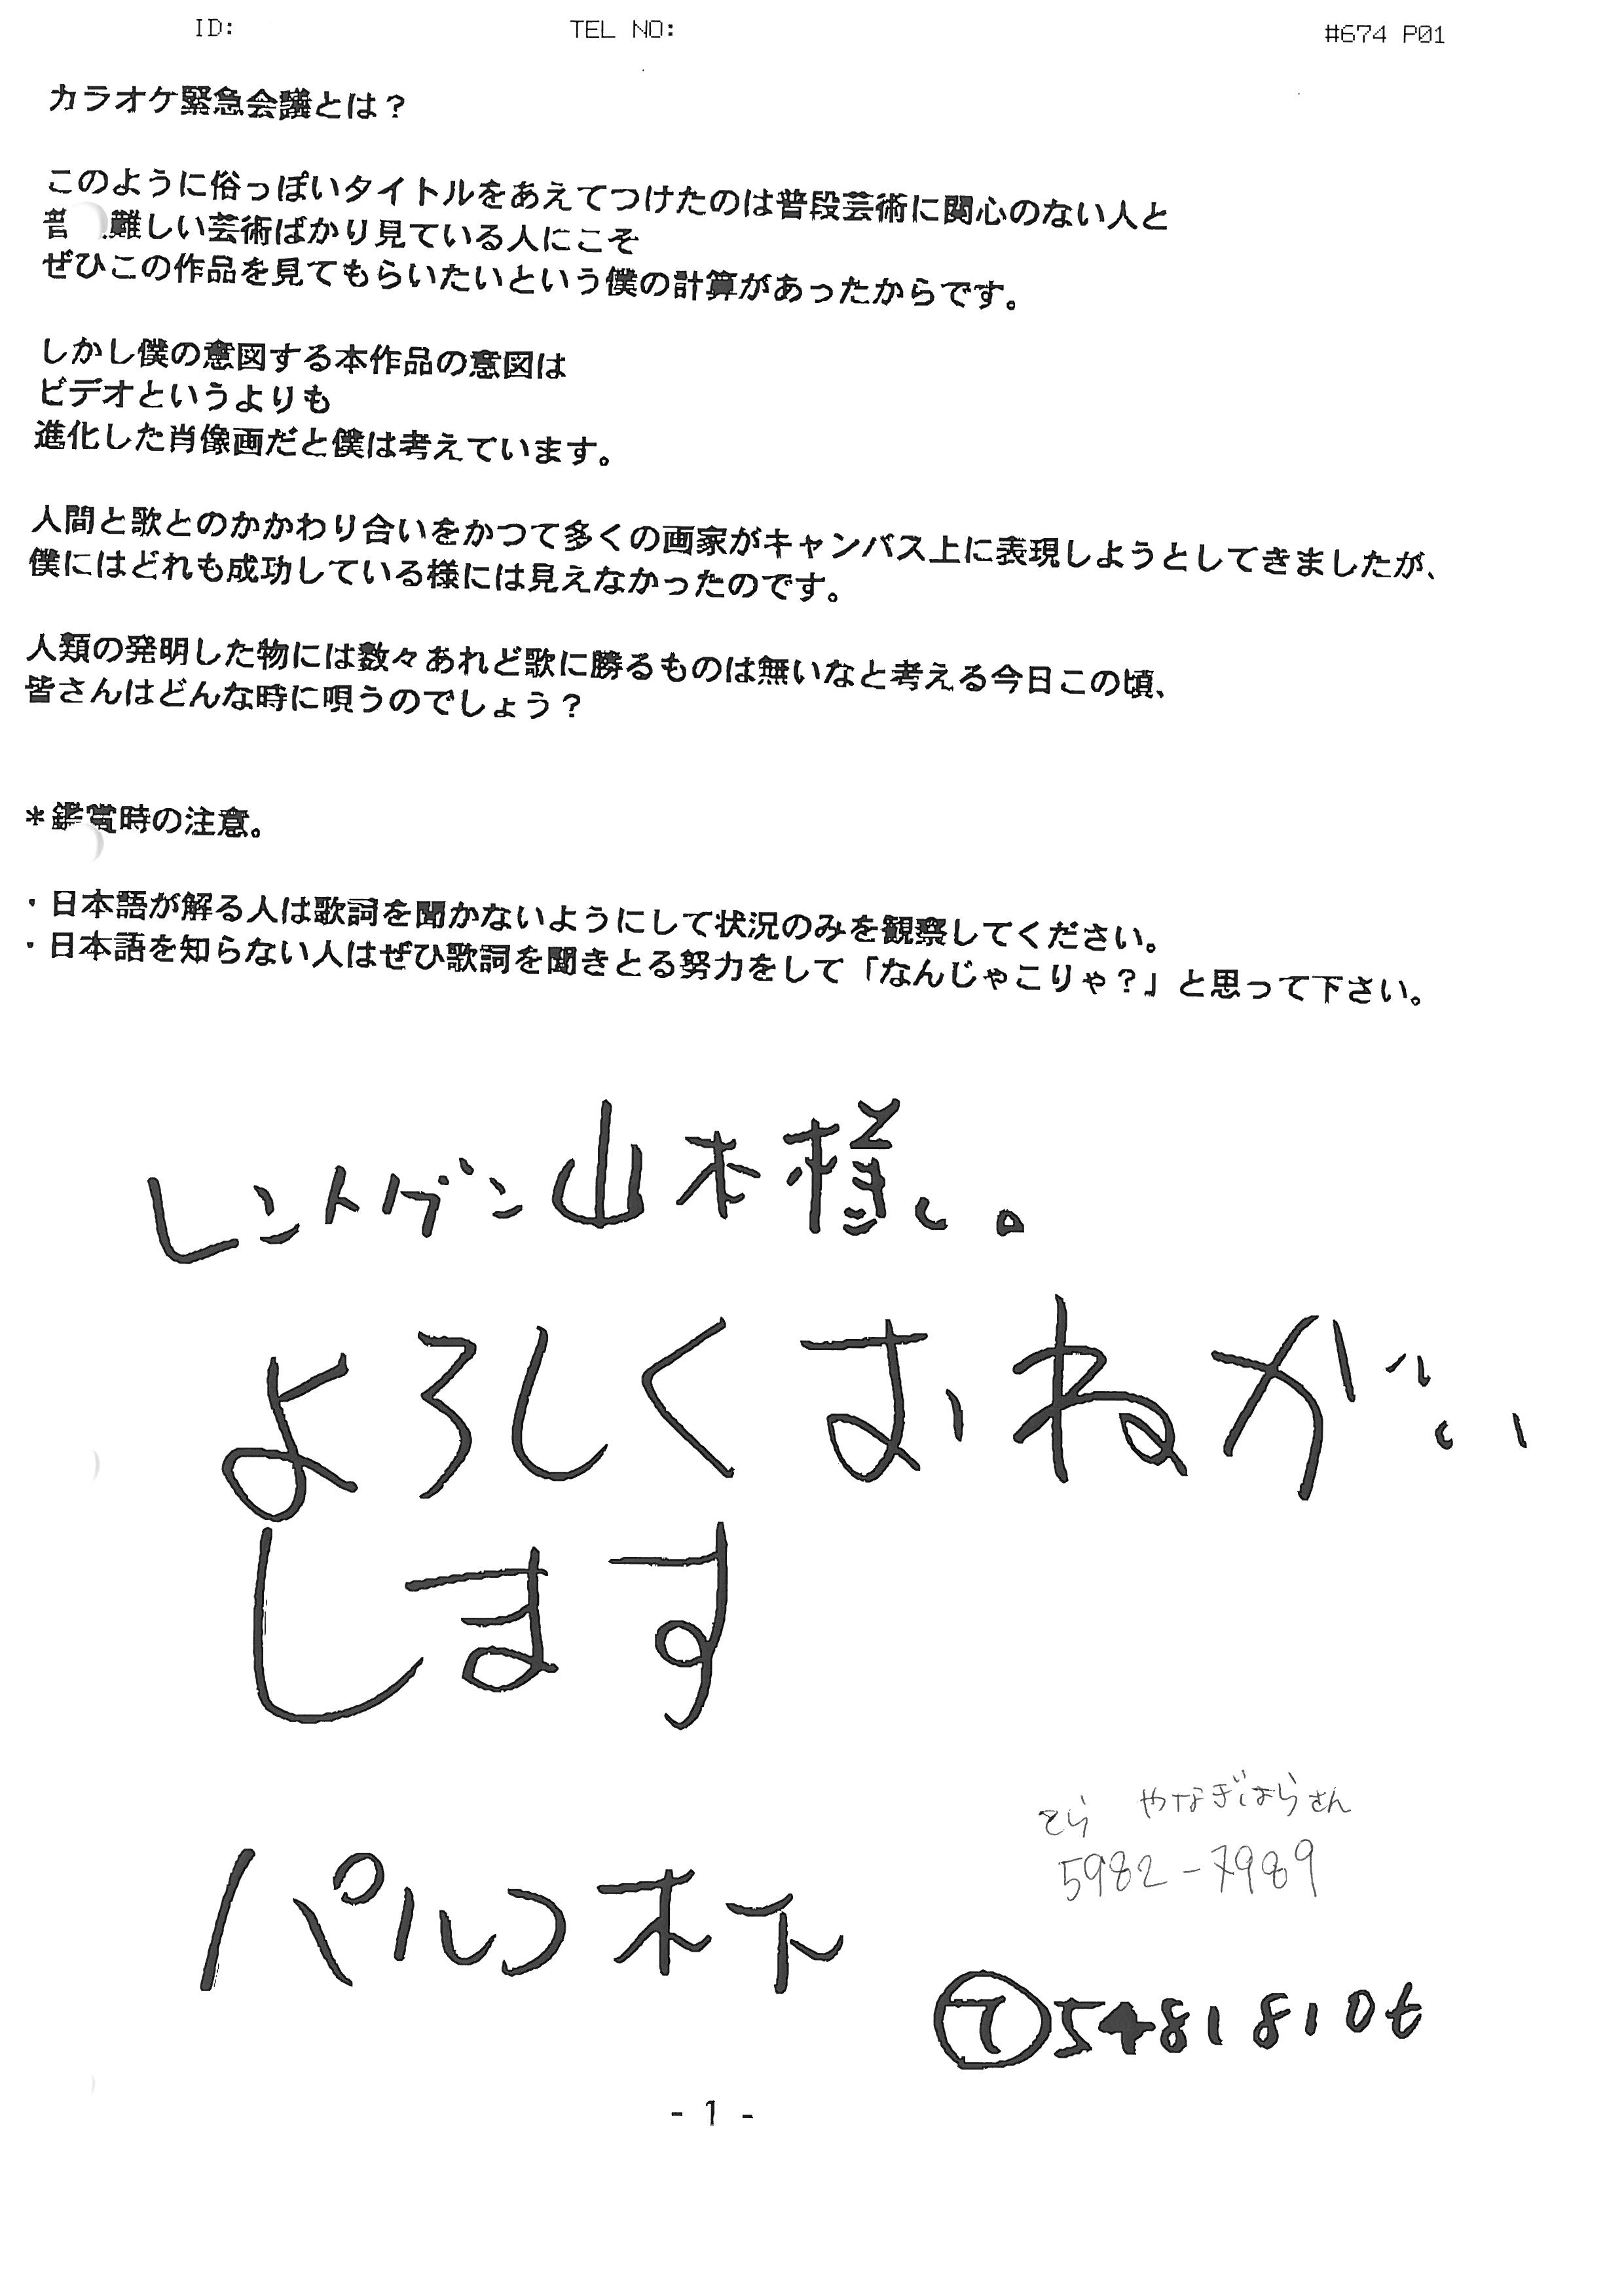 ID: TEL NO: #674 P01
カラオケ緊急会議とは？
このように俗っぽいタイトルをあえてつけたのは普段芸術に関心のない人と
普 難しい芸術ばかり見ている人にこそ
ぜひこの作品を見てもらいたいという僕の計算があったからです。
しかし僕の意図する本作品の意図は
ビデオというよりも
進化した肖像画だと僕は考えています。
人間と歌とのかかわり合いをかつて多くの画家がキャンバス上に表現しようとしてきましたが、
僕にはどれも成功している様には見えなかったのです。
人類の発明した物には数々あれど歌に勝るものは無いなと考える今日この頃、
皆さんはどんな時に唄うのでしょう？
＊鑑賞時の注意。
・日本語が解る人は歌詞を聞かないようにして状況のみを観察してください。
・日本語を知らない人はぜひ歌詞を聞きとる努力をして「なんじゃこりゃ？」と思って下さい。
レントゲン山本様。
よろしくおねがい
します
やなぎはらさん
5982-7989
パルコ木下
5481810
- 1 -